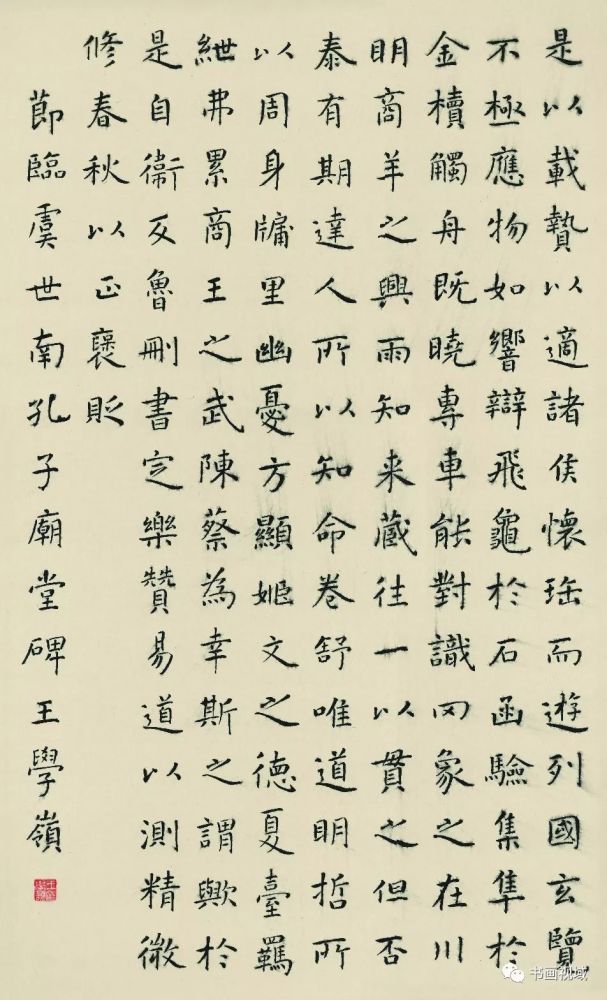 是以載贄以適諸侯懷瑤而遊列國玄覽
不極應物如響辯飛龜於石函驗集隼於
金櫝觸舟既曉專車能對識罔象之在川
明商羊之興雨知来藏往一以貫之但否
泰有期達人所以知命卷舒唯道明哲所
以周身牖里幽憂方顯姬文之德夏臺羈
紲弗累商王之武陳蔡為幸斯之謂歟於
是自衛反魯刪書定樂贊易道以測精微
修春秋以正襃貶
節臨虞世南孔子廟堂碑王學嶺
书画视域